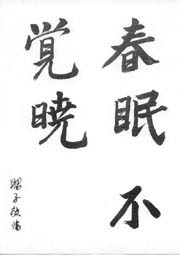 春眠不
覚暁